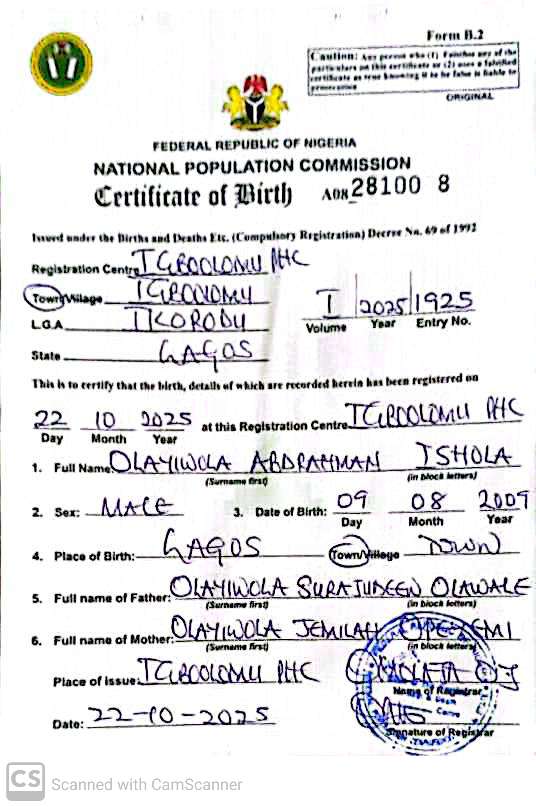 Form B.2
Caution: Any person who (1) Falsifies any of the
particulars on this certificate or (2) uses a falsified
certificate as true knowing it to be false is liable to
prosecution
ORIGINAL
FEDERAL REPUBLIC OF NIGERIA
NATIONAL POPULATION COMMISSION
Certificate of Birth A08 28100 8
Issued under the Births and Deaths Etc. (Compulsory Registration) Decree No. 69 of 1992
Registration Centre IGBOOLOMU PHC
Town/Village IGBOOLOMU
I 2025 1925
Volume Year Entry No.
L.G.A IKORODU
State LAGOS
This is to certify that the birth, details of which are recorded herein has been registered on
22 10 2025 at this Registration Centre IGBOOLOMU PHC
Day Month Year
1. Full Name: OLAYIWOLA ABDRAHMAN ISHOLA
(Surname first) (in block letters)
2. Sex: MALE 3. Date of Birth: 09 08 2009
Day Month Year
4. Place of Birth: LAGOS Town/Village TOWN
5. Full name of Father: OLAYIWOLA SURAJUDEEN OLAWALE
(Surname first) (in block letters)
6. Full name of Mother: OLAYIWOLA JEMILAH OPEYEMI
(Surname first) (in block letters)
Place of issue: IGBOOLOMU PHC
Name of Registrar
Date: 22-10-2025
Signature of Registrar
CS Scanned with CamScanner